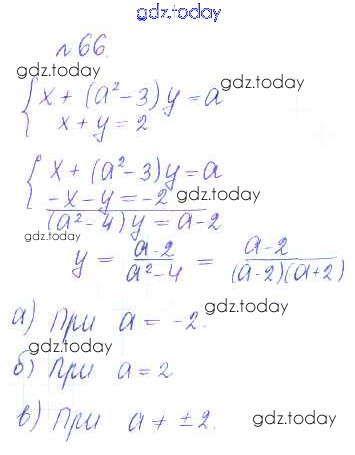 gdz.today
№ 66.
gdz.today
{ x + (a² - 3) y = a
x + y = 2
gdz.today
{ x + (a² - 3) y = a
-x - y = -2 gdz.today
(a² - 4) y = a - 2
gdz.today
y = a-2 / a²-4 = a-2 / (a-2)(a+2)
а) При a = -2. gdz.today
gdz.today
б) При a = 2
в) При a ≠ ±2. gdz.today